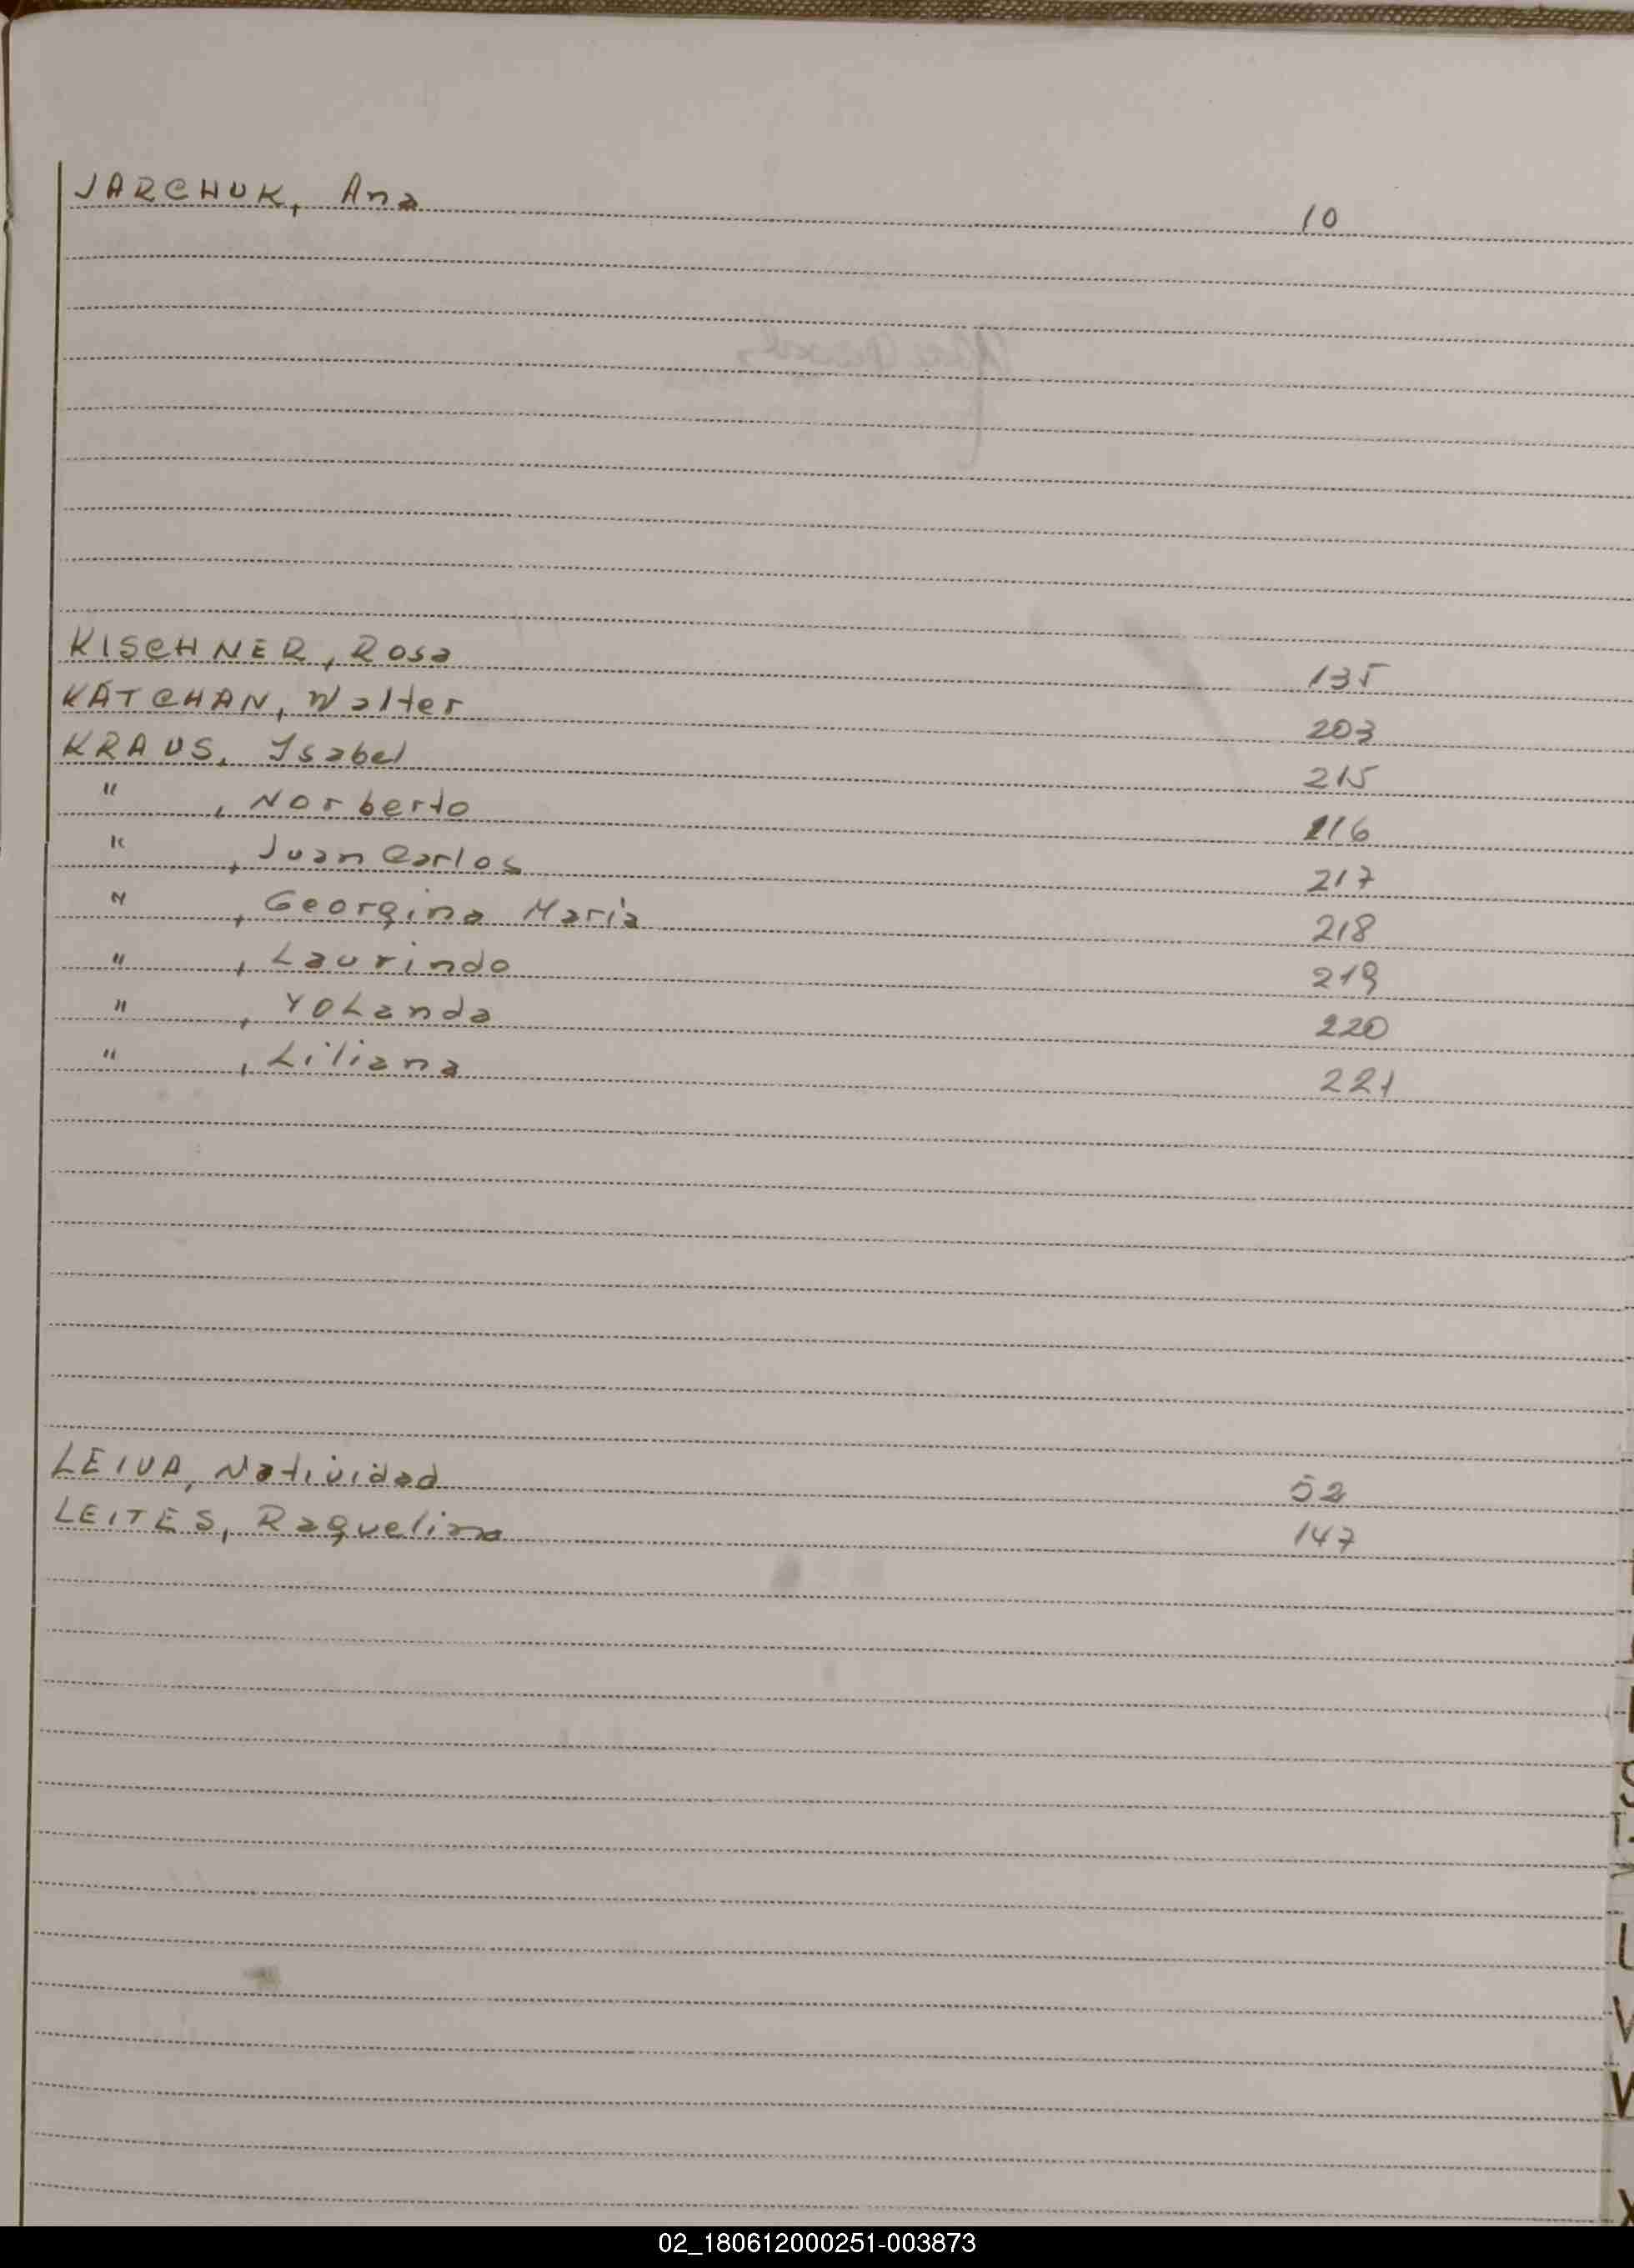 JARCHUK, Ana 10
KISCHNER, Rosa 135
KATCHAN, Walter 203
KRAUS, Isabel 215
" , Norberto 216
" , Juan Carlos 217
" , Georgina María 218
" , Laurindo 219
" , YOLanda 220
" , Liliana 221
LEIVA, Natividad 52
LEITES, Raquelina 147
S
T.
U
V
W
X
02_180612000251-003873